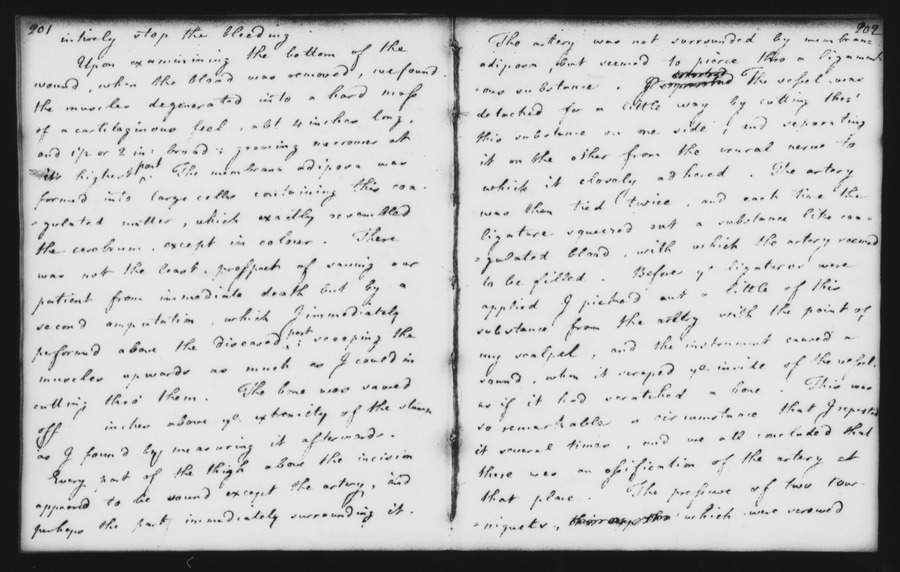 201
intirely stop the bleeding
Upon examinining the bottom of the
wound, when the blood was removed, we found
the muscles degenerated into a hard mass
of a cartilaginous feel, abt 4 inches long,
and 1½ or 2 in: broad; growing narrower at
its highest part. The membrana adiposa was
formed into large cells containing this coa-
-gulated matter, which exactly resembled
the cerebrum, except in colour. There
was not the least prospect of saving our
patient from immediate death but by a
second amputation, which I immediately
performed above the diseased part; scooping the
muscles upwards as much as I could in
cutting thro' them. The bone was sawed
off inches above ye. extremity of the stump
as I found by measuring it afterwards.
Every part of the thigh above the incision
appeared to be sound except the artery, and
perhaps the part immediately surrounding it.
202
The artery was not surrounded by membrana
adiposa, but seemed to pierce thro a ligament-
-ous substance. The vessel was
detached for a little way by cutting thro'
this substance on one side; and separating
it on the other from the crural nerve to
which it closely adhered. The artery
was then tied twice, and each time the
ligature squeezed out a substance like coa-
-gulated blood, with which the artery seemed
to be filled. Before ye ligatures were
applied I picked out a little of this
substance from the artery with the point of
my scalpel, and the instrument caused a
sound, when it scraped ye. inside of the vessel,
as if it had scratched a bone. This was
so remarkable a circumstance that I repeated
it several times, and we all concluded that
there was an ossification of the artery at
that place. The pressure of two tour-
-niquets, which were screwed